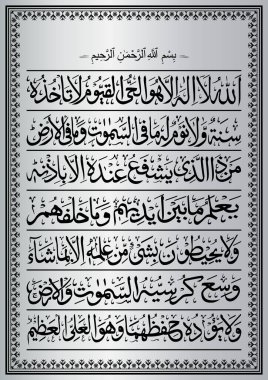 بِسْمِ ٱللَّهِ ٱلرَّحْمَٰنِ ٱلرَّحِيمِ
ٱللَّهُ لَا إِلَٰهَ إِلَّا هُوَ ٱلْحَىُّ ٱلْقَيُّومُ لَا تَأْخُذُهُ
سِنَةٌ وَلَا نَوْمٌ لَهُ مَا فِى ٱلسَّمَٰوَٰتِ وَمَا فِى ٱلْأَرْضِ
مَنْ ذَا ٱلَّذِى يَشْفَعُ عِنْدَهُ إِلَّا بِإِذْنِهِ
يَعْلَمُ مَا بَيْنَ أَيْدِيهِمْ وَمَا خَلْفَهُمْ
وَلَا يُحِيطُونَ بِشَىْءٍ مِنْ عِلْمِهِ إِلَّا بِمَا شَاءَ
وَسِعَ كُرْسِيُّهُ ٱلسَّمَٰوَٰتِ وَٱلْأَرْضَ
وَلَا يَئُودُهُ حِفْظُهُمَا وَهُوَ ٱلْعَلِىُّ ٱلْعَظِيمُ